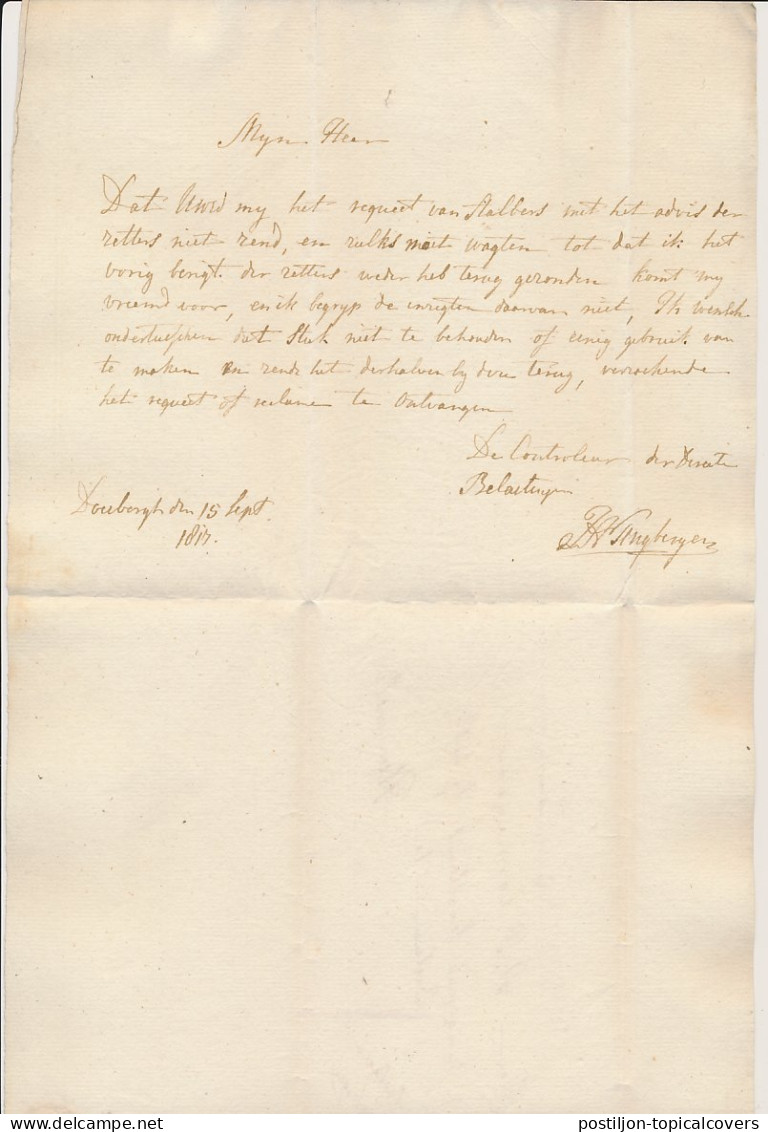 Myn Heer
Dat UwEd my het request van Aalbers met het advis der
zetters niet zend, en zulks moet wagten tot dat ik het
vorig berigt der zetters weder heb terug gezonden komt my
vreemd voor, en ik begryp de inzigten daarvan niet, Ik wensch
ondertusschen dit Stuk niet te behouden of eenig gebruik van
te maken en zende het derhalven by deze terug, verzoekende
het request of reclame te Ontvangen
De Controleur der Directe
Belastingen
Doesbergh den 15 Sept.
1817.
postiljon-topicalcovers